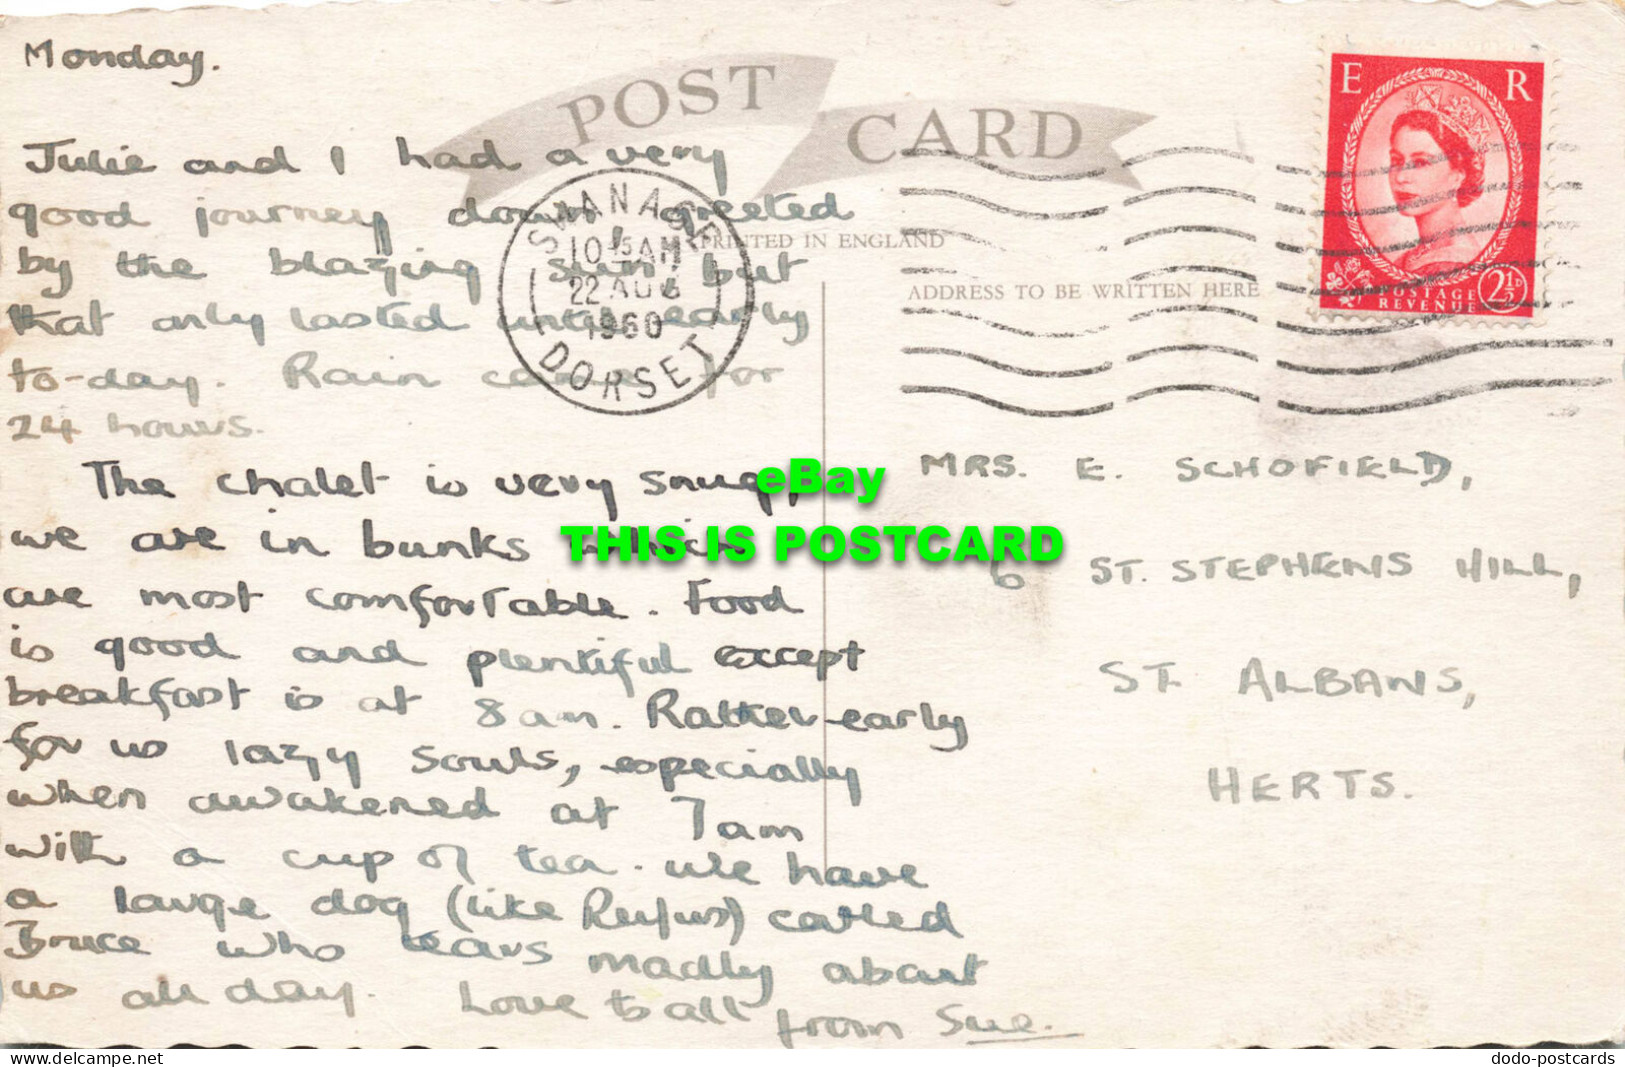 Monday.
Julie and I had a very
good journey down greeted
by the blazing sun but
that only lasted until early
to-day. Rain came for
24 hours.
The chalet is very snug,
we are in bunks which
are most comfortable. Food
is good and plentiful except
breakfast is at 8am. Rather early
for us lazy souls, especially
when awakened at 7am
with a cup of tea. We have
a large dog (like Rufus) called
Bruce who tears madly about
us all day. Love to all from Sue.
POST CARD
PRINTED IN ENGLAND
ADDRESS TO BE WRITTEN HERE
SWANAGE
10 15 AM
22 AUG
1960
DORSET
E R
POSTAGE
REVENUE
2½D
MRS. E. SCHOFIELD,
6 ST. STEPHENS HILL,
ST ALBANS,
HERTS.
eBay
THIS IS POSTCARD
Delcampe.net
dodo-postcards